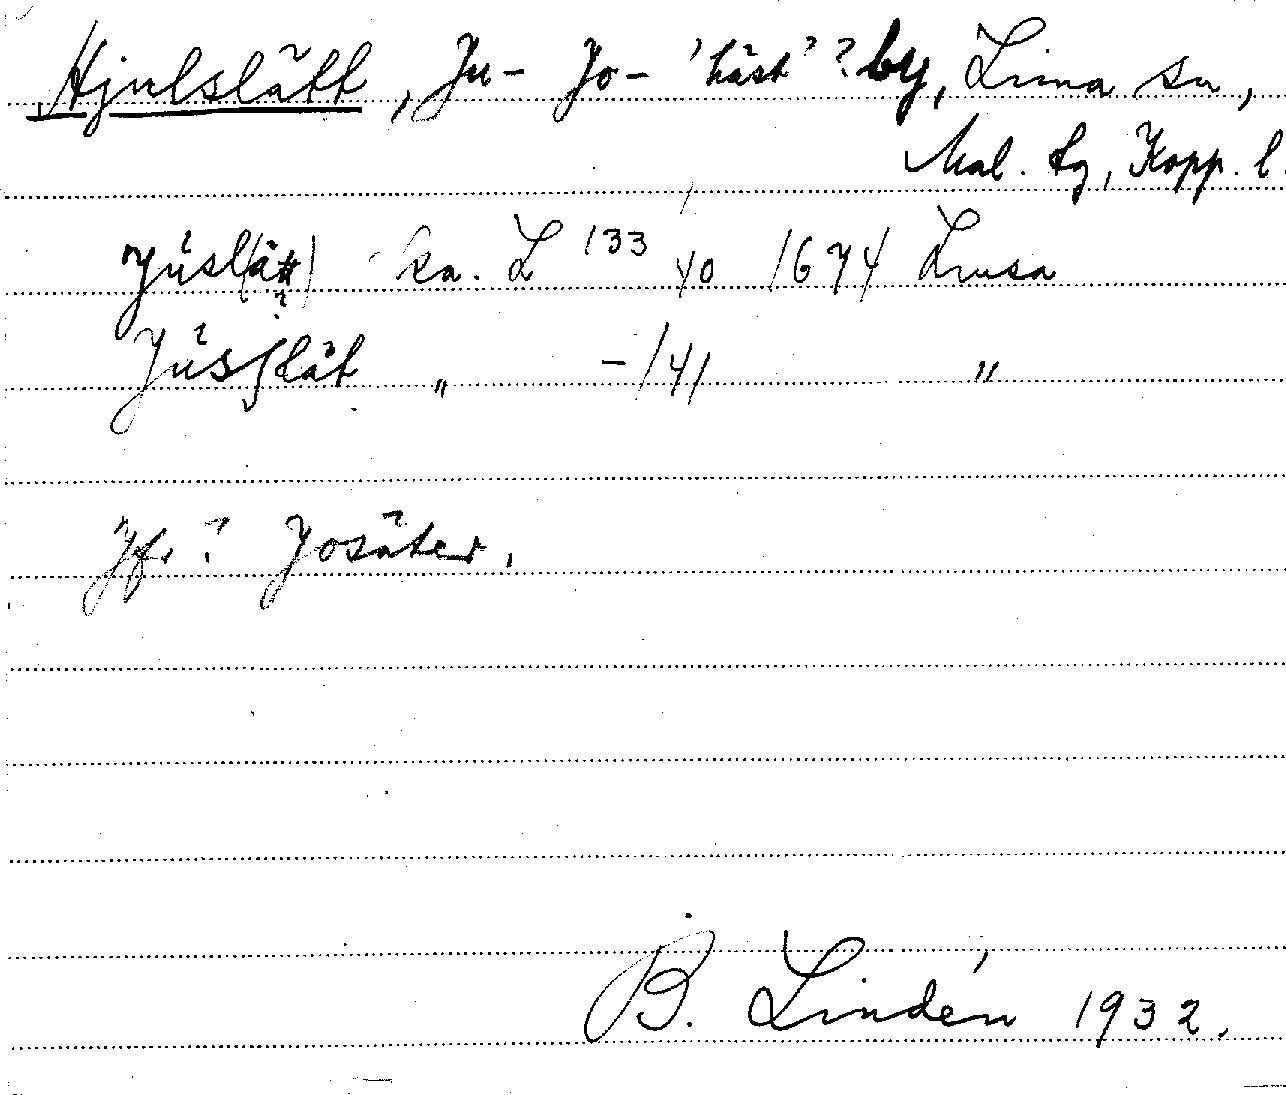 Hjulslätt, Ju- Jo- 'häst'? by, Lima sn,
Mal. tg, Kopp. l.
Júsl(ätt) ka. L 133 40 1674 Lmsa
Jússlät " -/41 "
Jfr? Josäter.
B. Lindén 1932.